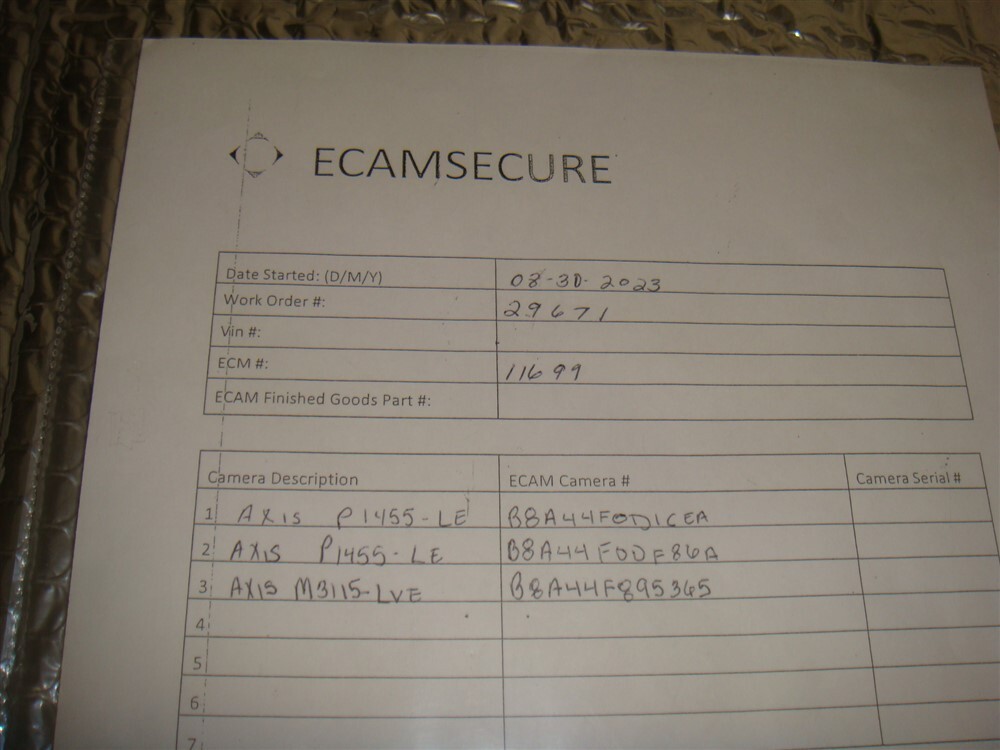 ECAMSECURE
Date Started: (D/M/Y) 08-30-2023
Work Order #: 29671
Vin #:
ECM #: 11699
ECAM Finished Goods Part #:
Camera Description ECAM Camera # Camera Serial #
1 AXIS P1455-LE B8A44F0D1CEA
2 AXIS P1455-LE B8A44F0DF86A
3 AXIS M3115-LVE B8A44F895365
4
5
6
7